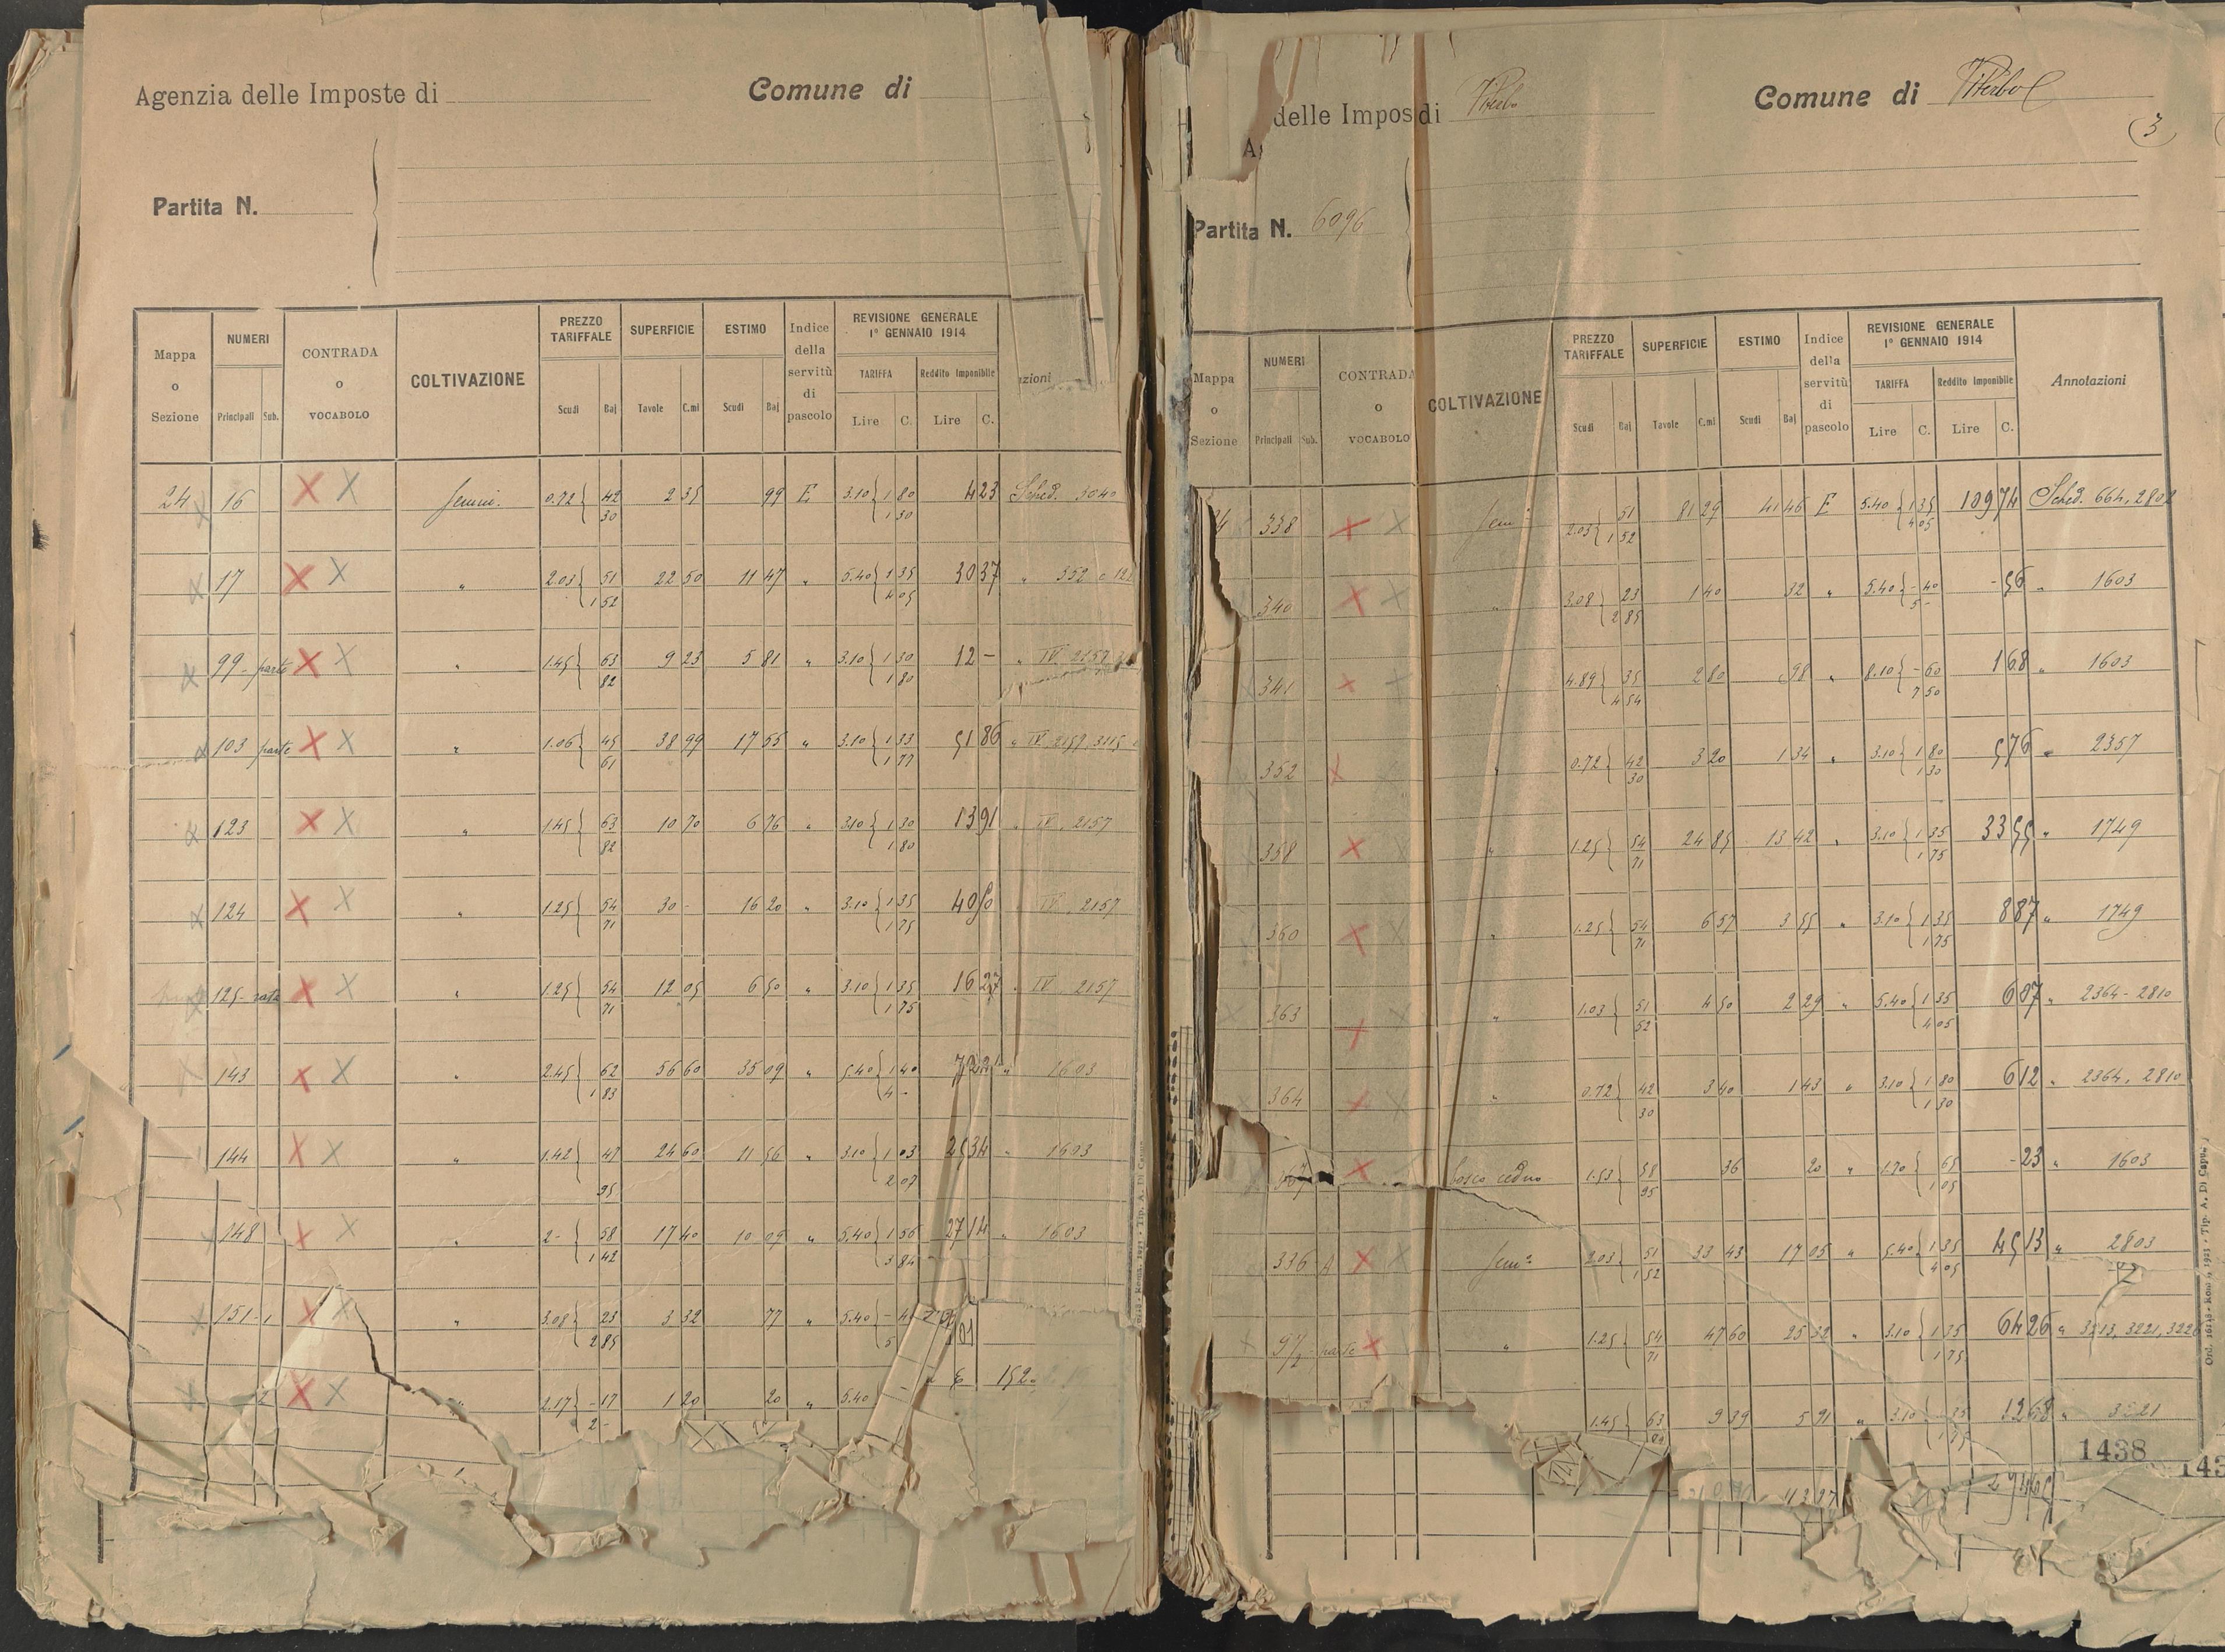 Agenzia delle Imposte di
Comune di
Partita N.
Mappa o Sezione
NUMERI
Principali Sub.
CONTRADA o VOCABOLO
COLTIVAZIONE
PREZZO TARIFFALE
Scudi Baj
SUPERFICIE
Tavole C.mi
ESTIMO
Scudi Baj
Indice della servitù di pascolo
REVISIONE GENERALE 1° GENNAIO 1914
TARIFFA Reddito Imponibile
Lire C. Lire C.
zioni
24 16 0.72 42 2 35 99 E 3.10 1 80 4 23 Sched. 3040
30 1 30
17 " 2.03 51 22 50 11 47 " 5.40 1 35 30 37 " 352
1 52 4 05
99 - parte " 1.45 63 9 23 5 81 " 3.10 1 30 12 - " IV. 2157
82 1 80
103 parte " 1.06 45 38 99 17 55 " 3.10 1 33 51 86 " IV. 2157, 3115
61 1 77
123 " 1.45 63 10 70 6 76 " 3.10 1 30 13 91 " IV. 2157
82 1 80
124 " 1.25 54 30 - 16 20 " 3.10 1 35 40 50 " IV. 2157
71 1 75
125 - " 1.25 54 12 05 6 50 " 3.10 1 35 16 27 " IV. 2157
71 1 75
143 " 2.45 62 56 60 35 09 " 5.40 1 40 " 1603
1 83 4 -
144 " 1.42 47 24 60 11 56 " 3.10 1 03 25 34 " 1603
95 2 07
148 " 2 - 58 17 40 10 09 " 5.40 1 56 27 14 " 1603
1 42 3 84
151 - 1 " 3.08 23 3 32 77 " 5.40
2 85 5
2 " 2.17 - 17 1 20 20 " 5.40
2 -
delle Impos di Viterbo
Comune di Viterbo
3
Partita N. 6096
Mappa o Sezione
NUMERI
Principali Sub.
CONTRADA o VOCABOLO
COLTIVAZIONE
PREZZO TARIFFALE
Scudi Baj
SUPERFICIE
Tavole C.mi
ESTIMO
Scudi Baj
Indice della servitù di pascolo
REVISIONE GENERALE 1° GENNAIO 1914
TARIFFA Reddito Imponibile
Lire C. Lire C.
Annotazioni
338 Sem.o 2.03 51 81 29 41 46 E 5.40 1 35 109 74 Sched. 664, 2802
1 52 4 05
340 " 3.08 23 1 40 32 " 5.40 - 40 - 56 " 1603
2 85 5 -
341 " 4.89 35 2 80 98 " 8.10 - 60 1 68 " 1603
4 54 7 50
352 " 0.72 42 3 20 1 34 " 3.10 1 80 5 76 " 2357
30 1 30
358 " 1.25 54 24 85 13 42 " 3.10 1 35 33 55 " 1749
71 1 75
360 " 1.25 54 6 57 3 55 " 3.10 1 35 8 87 " 1749
71 1 75
363 " 1.03 51 4 50 2 29 " 5.40 1 35 6 07 " 2364 - 2810
52 4 05
364 " 0.72 42 3 40 1 43 " 3.10 1 80 6 12 " 2364, 2810
30 1 30
367 bosco ceduo 1.53 58 36 20 " 1.70 65 - 23 " 1603
95 1 05
336 A Sem.o 2.03 51 33 43 17 05 " 5.40 1 35 45 13 " 2803
1 52 4 05
97/2 - parte " 1.25 54 47 60 25 32 " 3.10 1 35 64 26 " 3213, 3221,
71 1 75
1.45 63 9 39 5 91 " 3.10 12 68 " 3221
1438
143
Ord. 16118 - Roma, 1923 - Tip. A. Di Capua